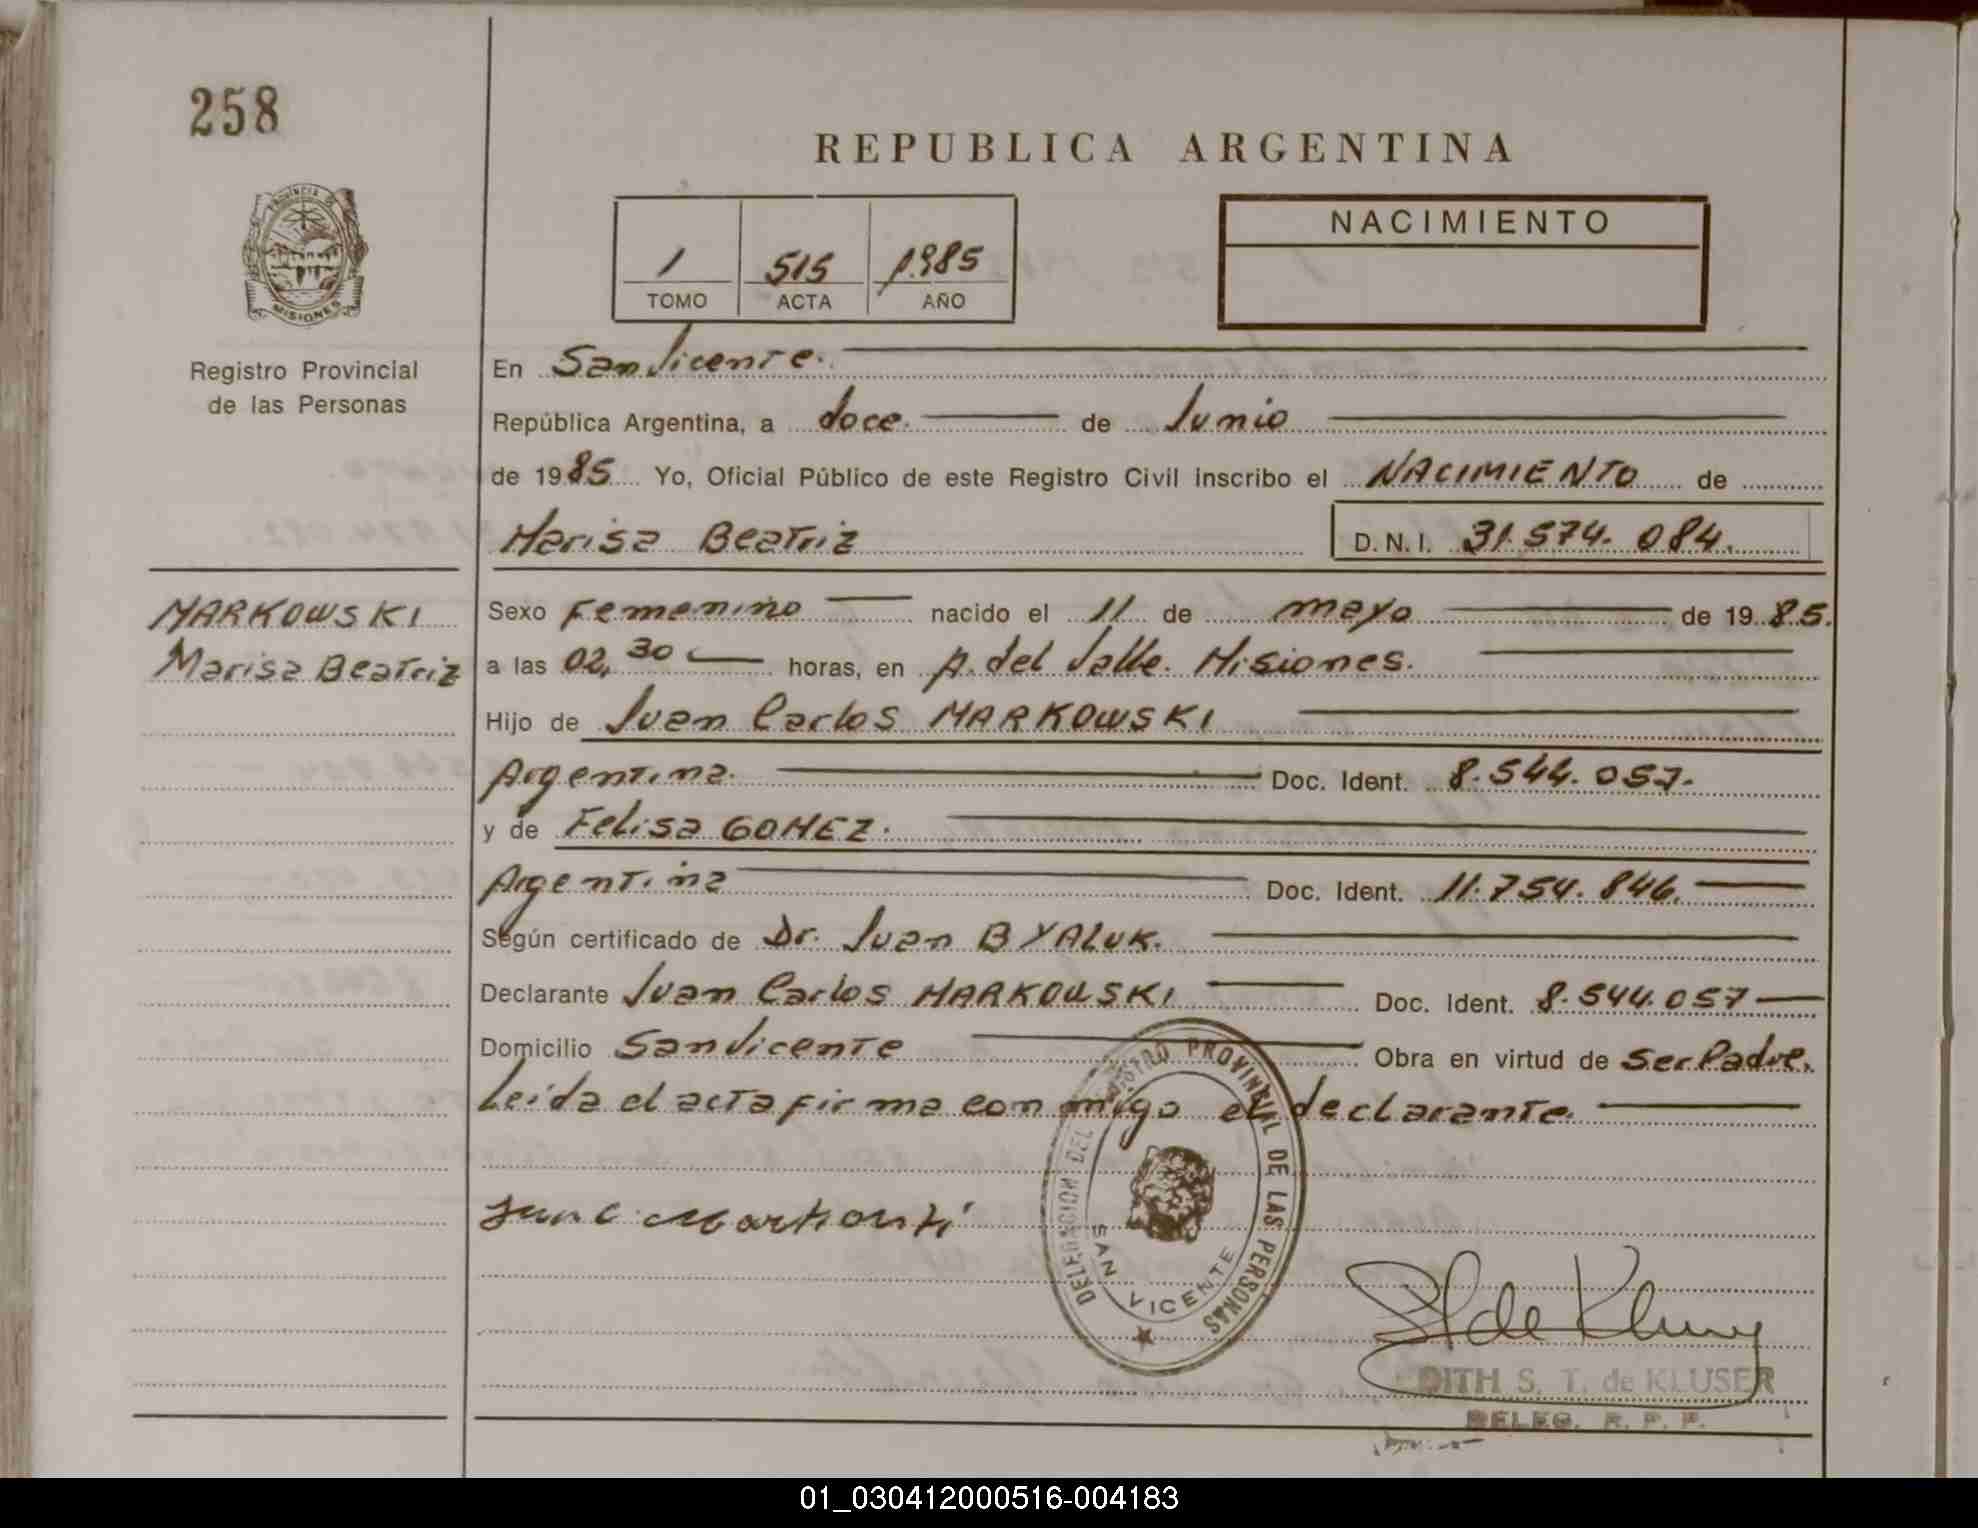 258
REPUBLICA ARGENTINA
PROVINCIA DE
MISIONES
1 515 1.985
TOMO ACTA AÑO
NACIMIENTO
Registro Provincial
de las Personas
En San Vicente.
República Argentina, a doce. de Junio
de 1985 Yo, Oficial Público de este Registro Civil inscribo el NACIMIENTO de
Marisa Beatriz D.N.I. 31.574.084.
MARKOWSKI
Marisa Beatriz
Sexo Femenino nacido el 11 de mayo de 1985.
a las 02,30 horas, en A. del Valle. Misiones.
Hijo de Juan Carlos MARKOWSKI
Argentina. Doc. Ident. 8.544.057.
y de Felisa GOMEZ.
Argentina Doc. Ident. 11.754.846.
Según certificado de Dr. Juan BYALUK.
Declarante Juan Carlos MARKOWSKI Doc. Ident. 8.544.057
Domicilio San Vicente Obra en virtud de ser Padre.
Leida el acta firma conmigo el declarante.
Juan C. Markowski
DELEGACION DEL REGISTRO PROVINCIAL DE LAS PERSONAS
SAN VICENTE
DITH S. T. de KLUSER
DELEG. R. P. P.
01_030412000516-004183